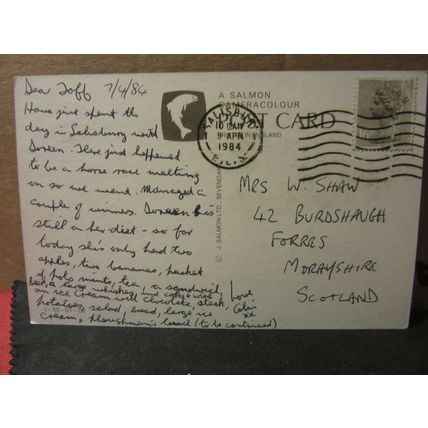 Dear Taff 7/4/84
Have just spent the
day in Salisbury with
Doreen. There just happened
to be a horse race meeting
on so we went. Managed a
couple of winners. Doreen is
still on her diet - so far
today she's only had two
apples, two bananas, packet
of polo mints, tea, a sandwich,
beer, a large whiskey, and coke & wine
an ice cream with chocolate steak,
potatoes, salad, bread, large ice
cream, ploughman's lunch (to be continued)
Love
Colin
xx
A SALMON
CAMERACOLOUR
POST CARD
PRINTED IN ENGLAND
© J. SALMON LTD., SEVENOAKS
1-36-01-06
SALISBURY
10 AM
9 APR
1984
MRS W. SHAW
42 BURDSHAUGH
FORRES
MORAYSHIRE
SCOTLAND